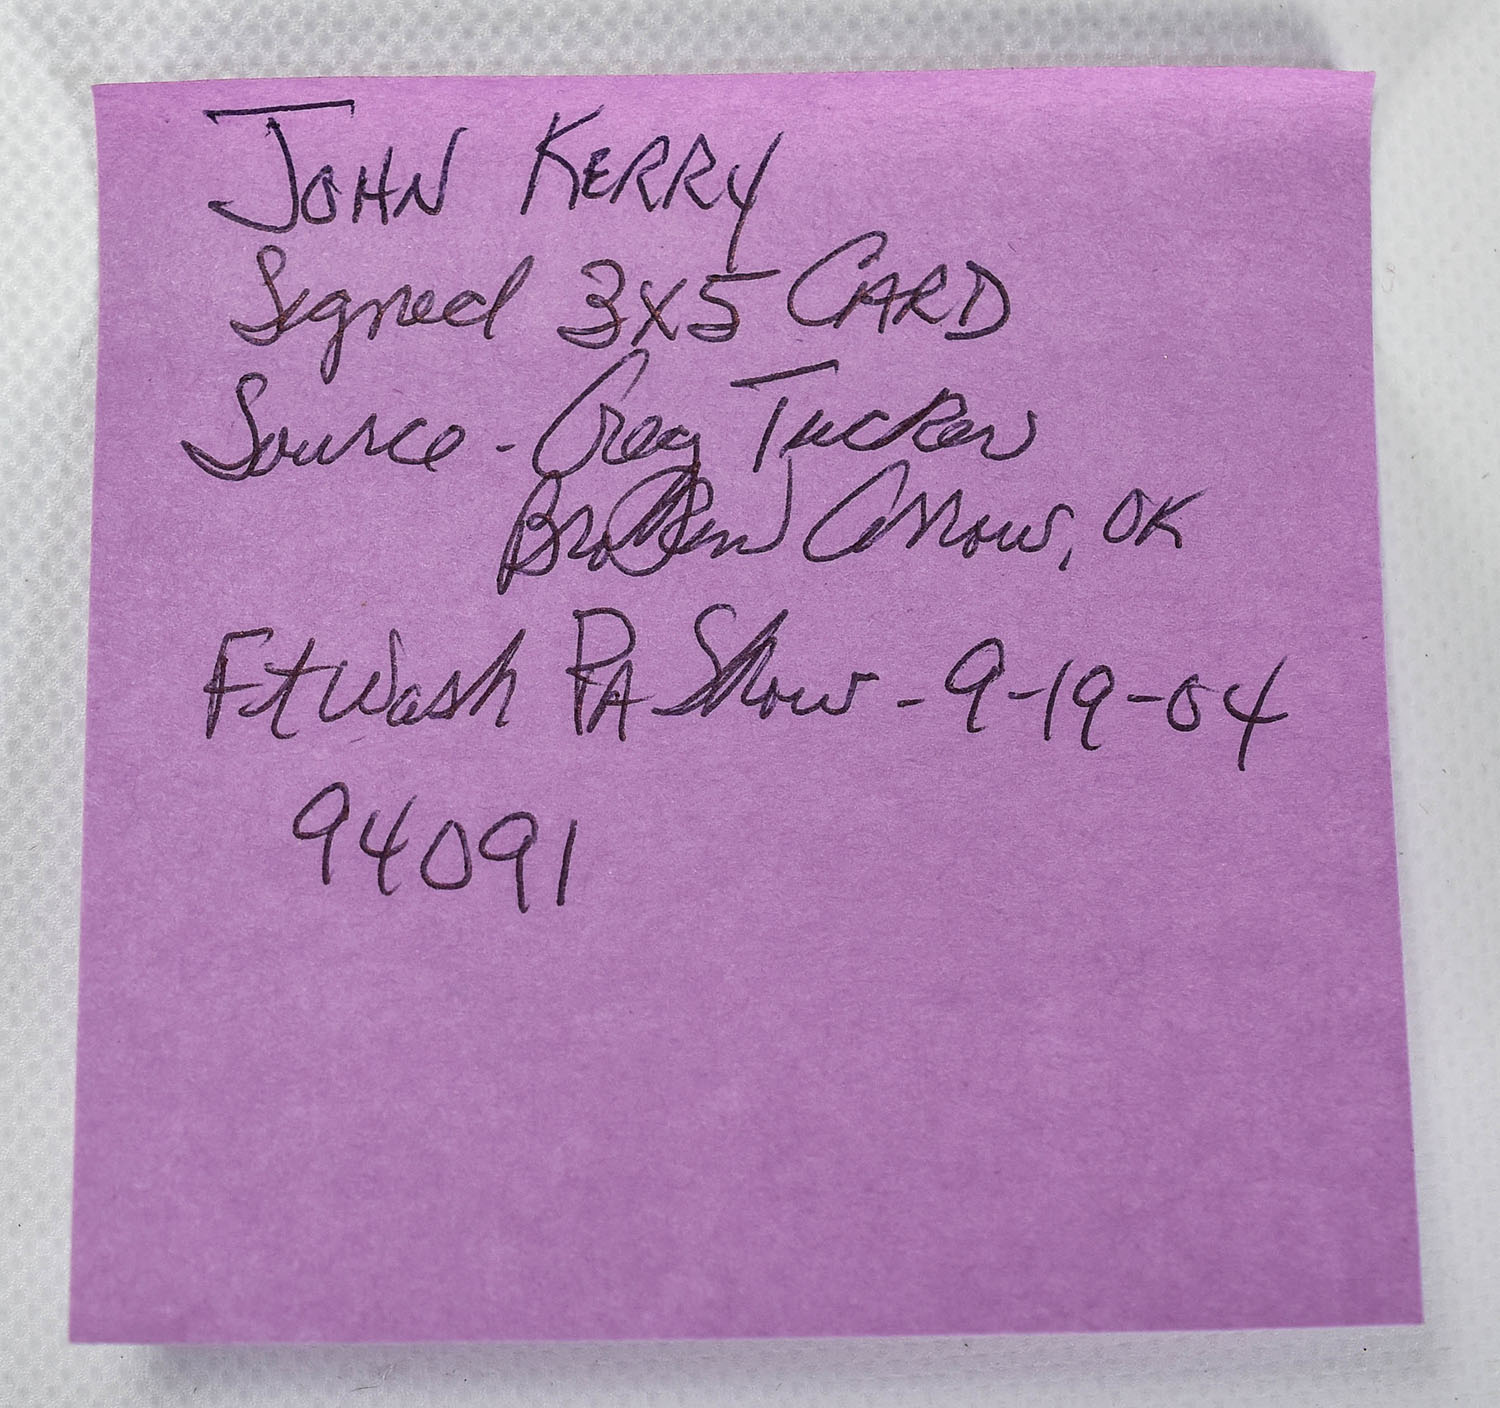 JOHN KERRY
Signed 3x5 CARD
Source - Greg Tucker
Broken Arrow, OK
Ft Wash PA Show - 9-19-04
94091